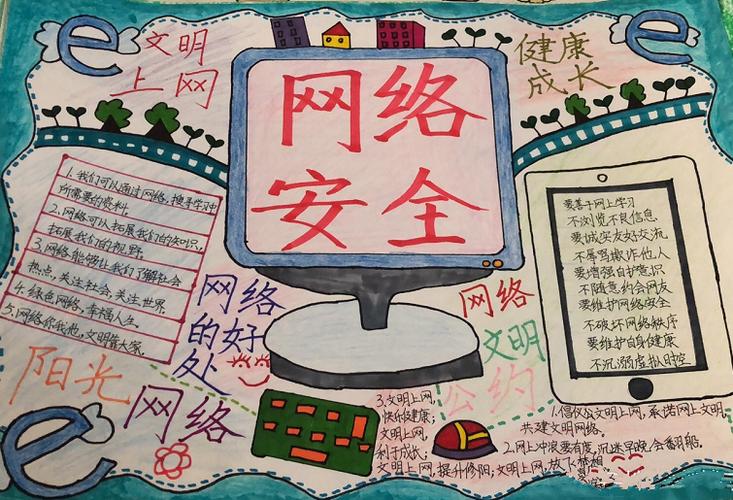 e
文明
上网
网络
安全
健康
成长
e
1.我们可以通过网络,搜寻学习中
所需要的资料.
2.网络可以拓展我们的知识,
拓展我们的视野.
3.网络能够让我们了解社会
热点,关注社会,关注世界.
4.绿色网络,幸福人生.
5.网络你我他,文明靠大家.
网络
的好
处
阳光
网络
e
要善于网上学习
不浏览不良信息
要诚实友好交流
不辱骂欺诈他人
要增强自护意识
不随意约会网友
要维护网络安全
不破坏网络秩序
要维护自身健康
不沉溺虚拟时空
网络
文明
公约
3.文明上网,
快乐健康;
文明上网,
利于成长;
文明上网,提升修阳;文明上网,放飞梦想
1.倡仪公文明上网,承诺网上文明,
共建文明网络.
2.网上冲浪要有度,沉迷早晚会翻船.